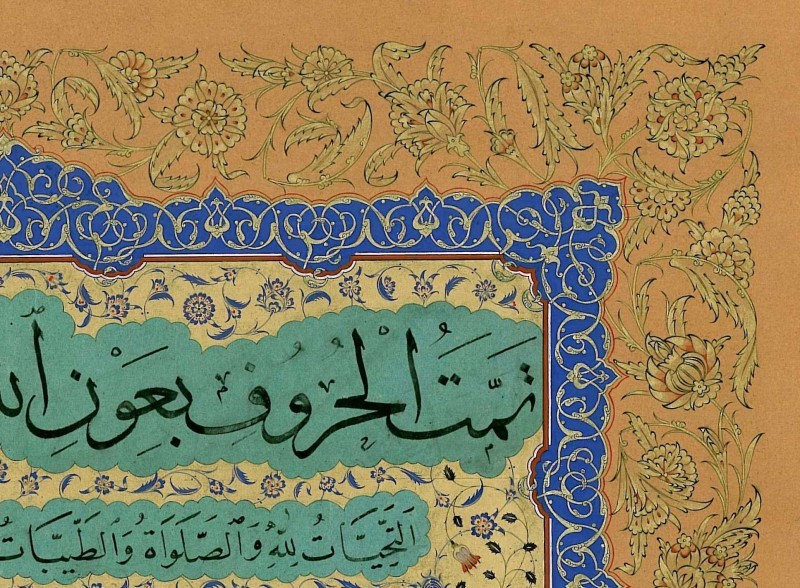 تَمَّتُ الْحُرُوفِ بِعَوْنِ
اَلتَّحِيَّاتُ لِلّٰهِ وَالصَّلَوَاةُ وَالطَّيِّبَاتُ